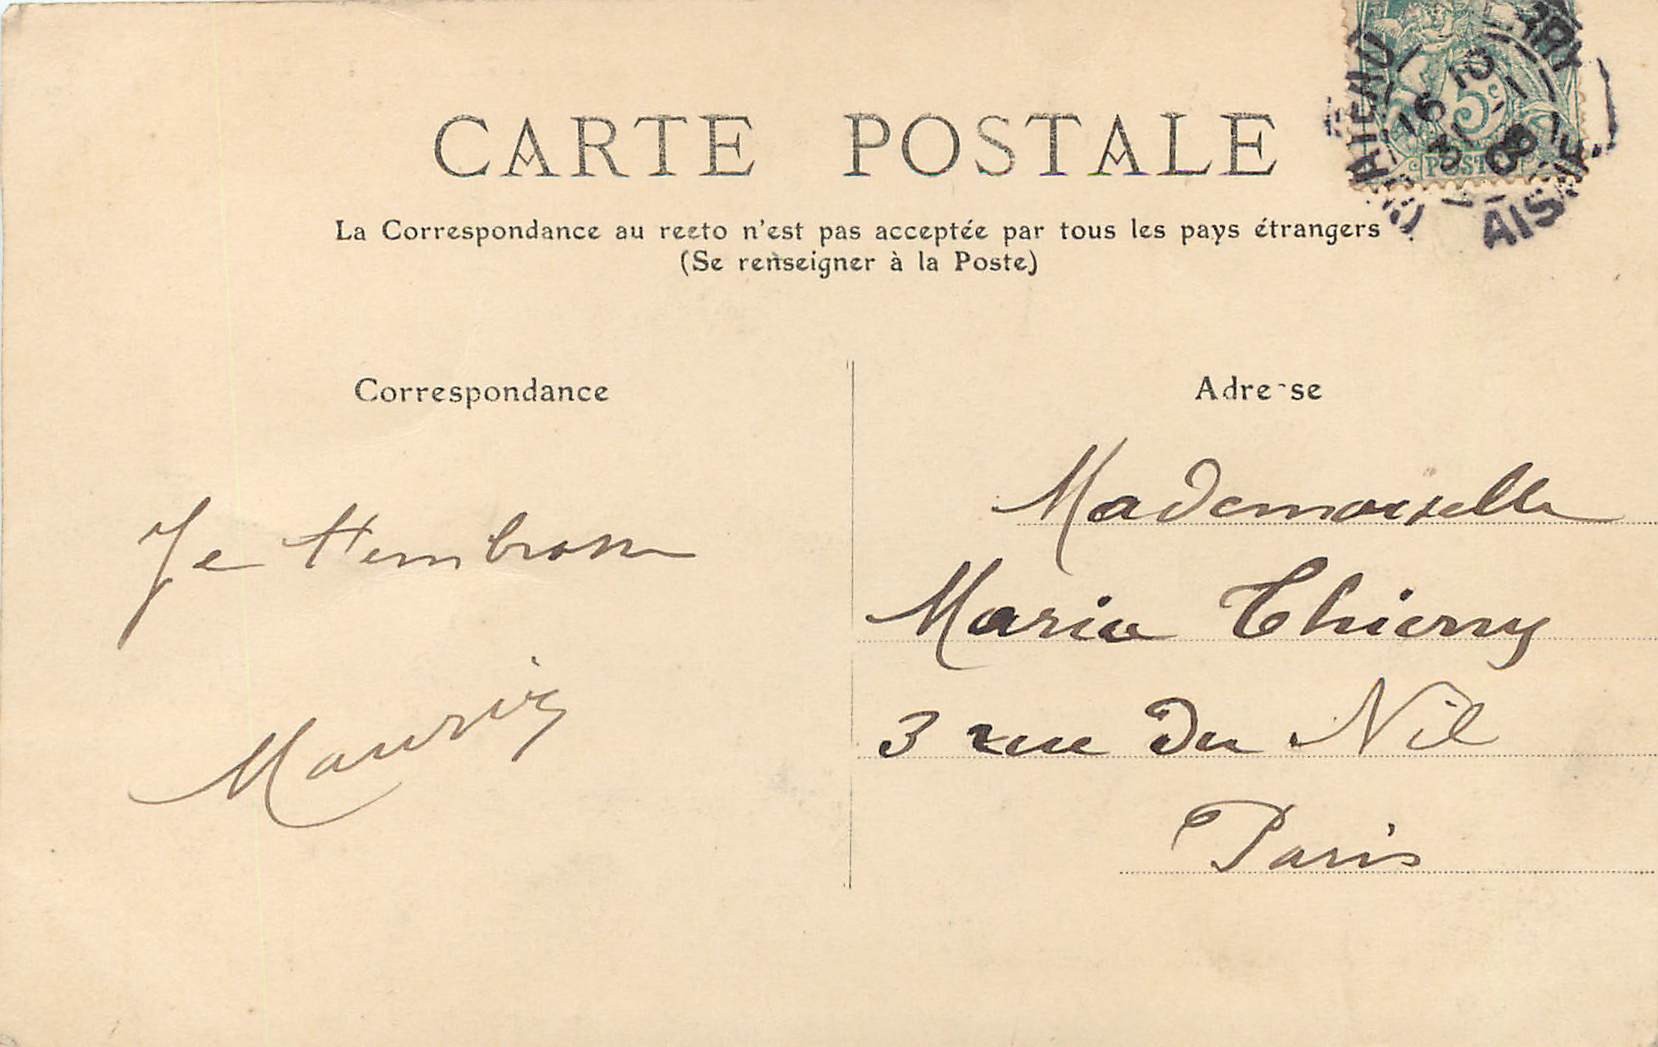 CARTE POSTALE
La Correspondance au recto n'est pas acceptée par tous les pays étrangers
(Se renseigner à la Poste)
5c
POSTES
CHATEAU
AISNE
Correspondance
Je t'embrasse
Adresse
Mademoiselle
Maria Thierry
3 rue du Nil
Paris